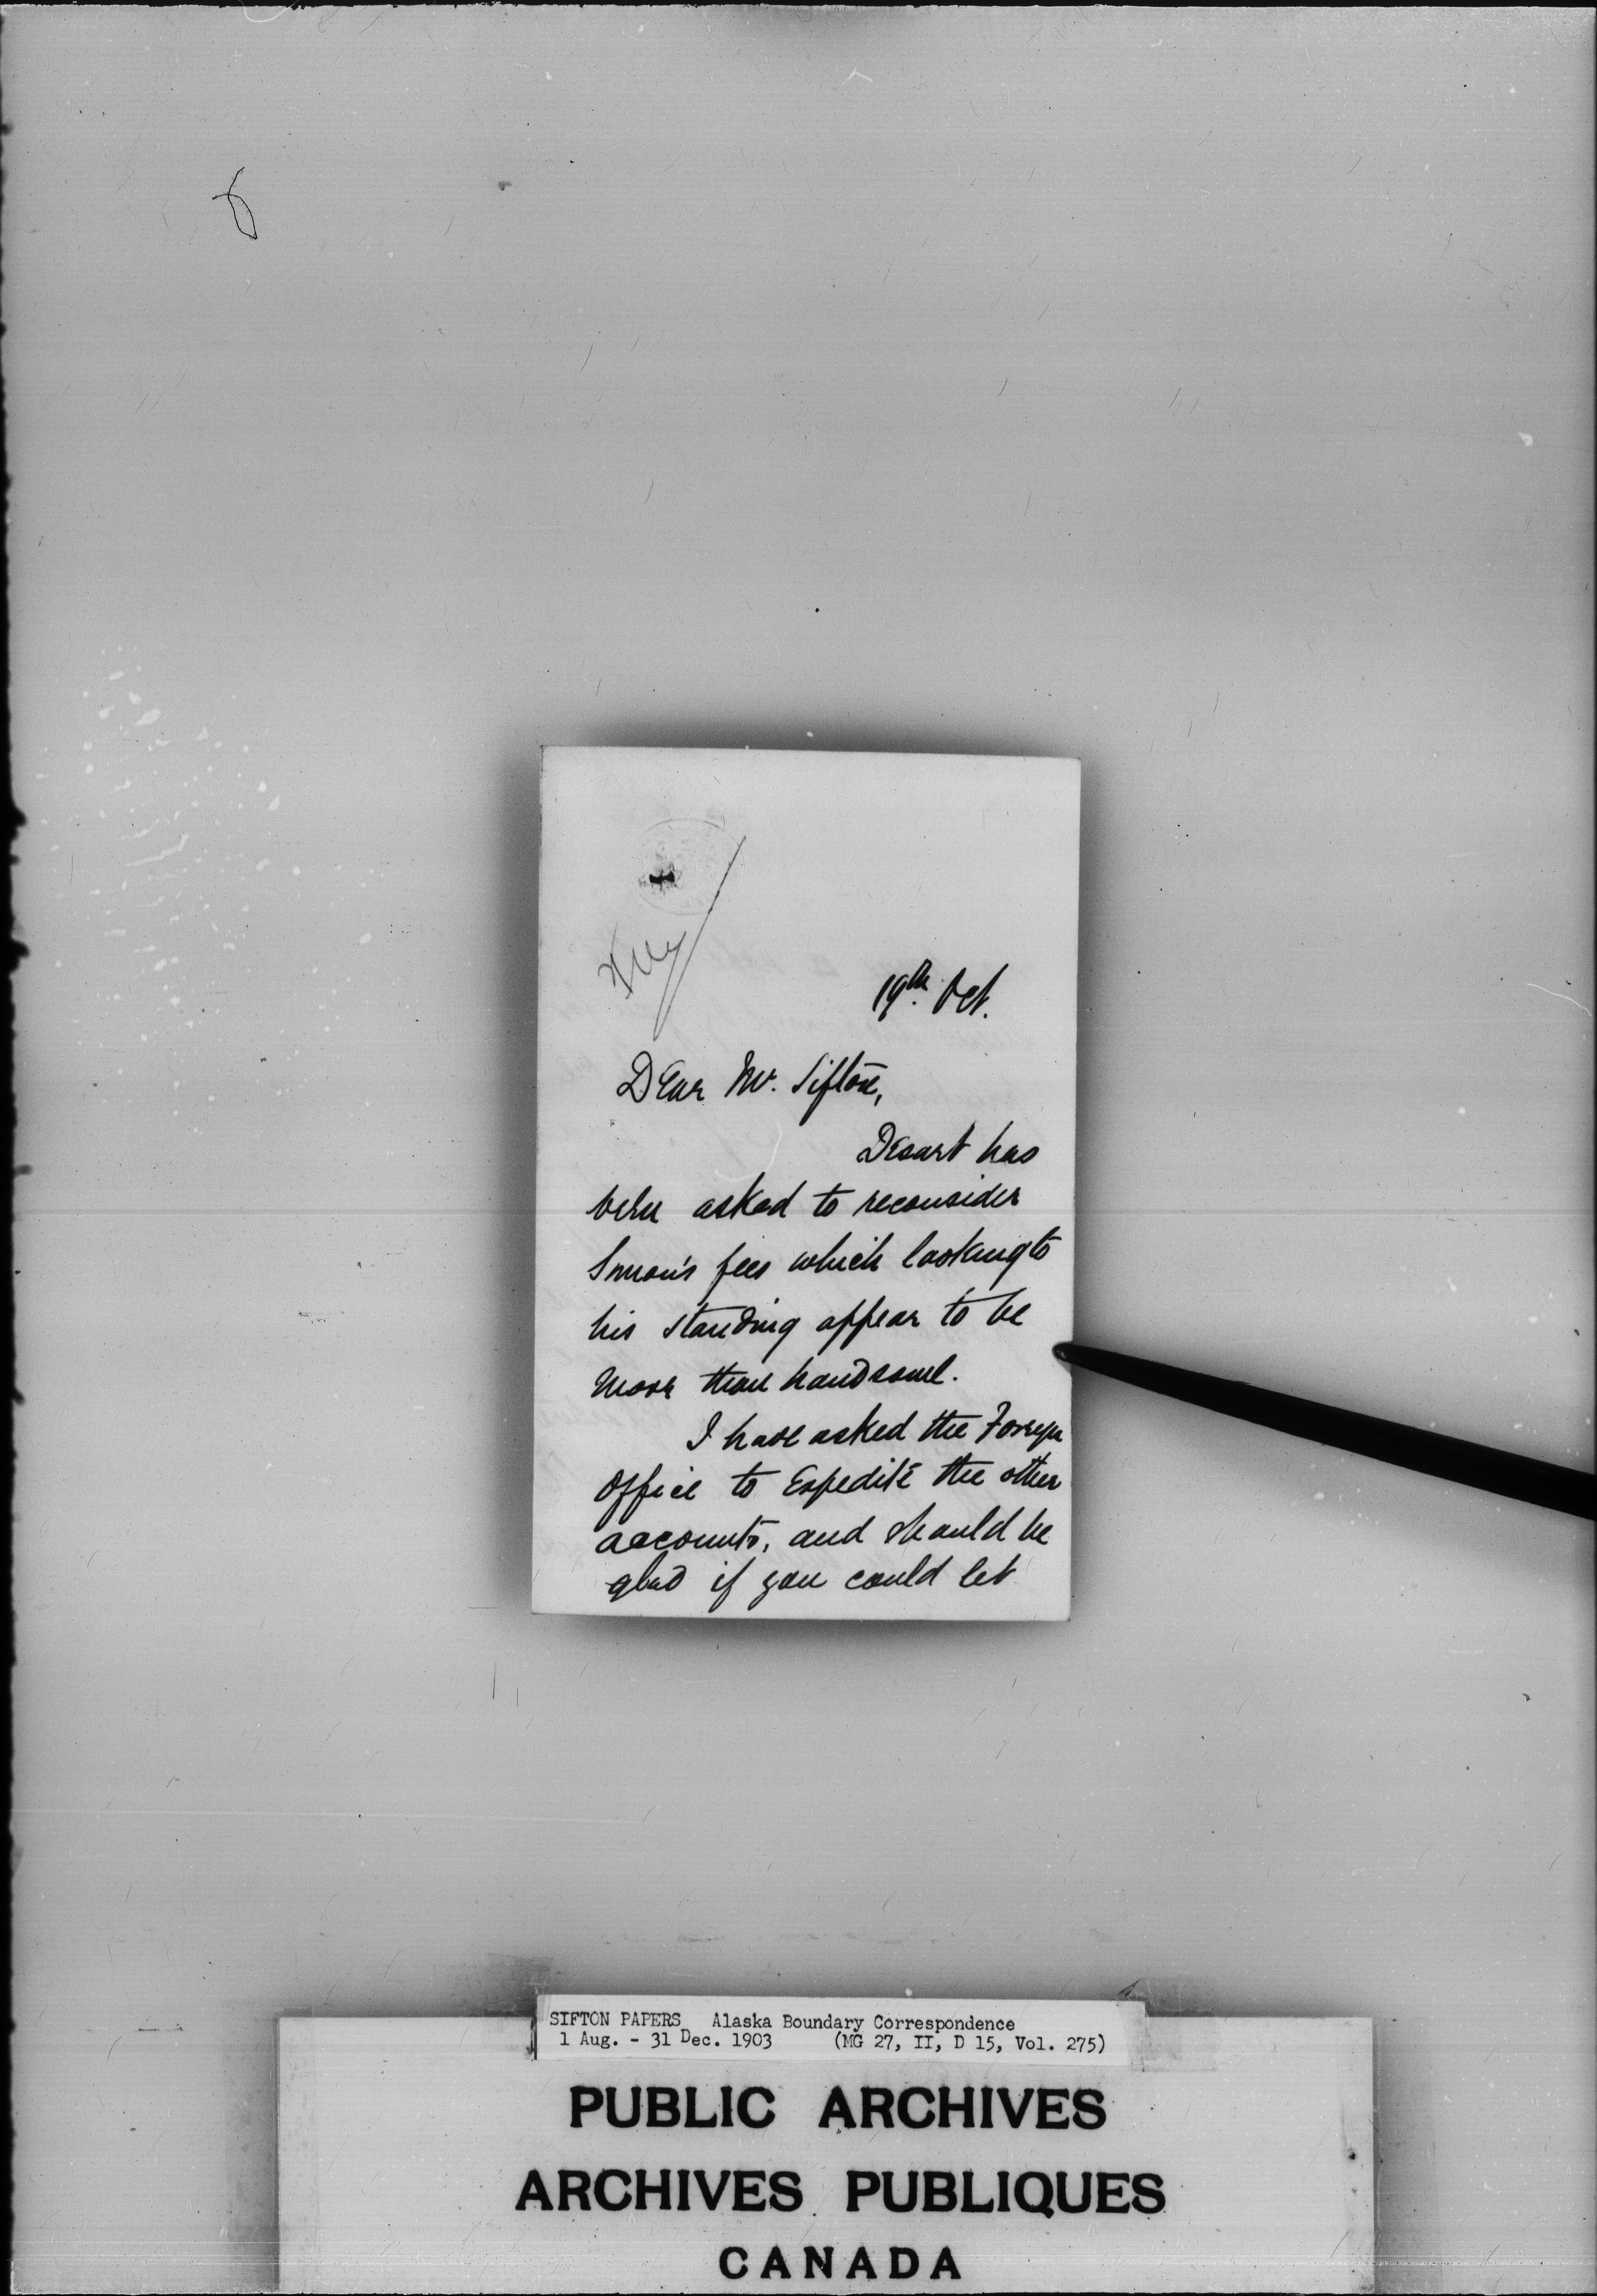 19th Oct.
Dear Mr. Sifton,
Desart has
been asked to reconsider
Simon's fees which looking to
his standing appear to be
more than handsome.
I have asked the Foreign
Office to expedite the other
accounts, and should be
glad if you could let
SIFTON PAPERS Alaska Boundary Correspondence
1 Aug. - 31 Dec. 1903 (MG 27, II, D 15, Vol. 275)
PUBLIC ARCHIVES
ARCHIVES PUBLIQUES
CANADA